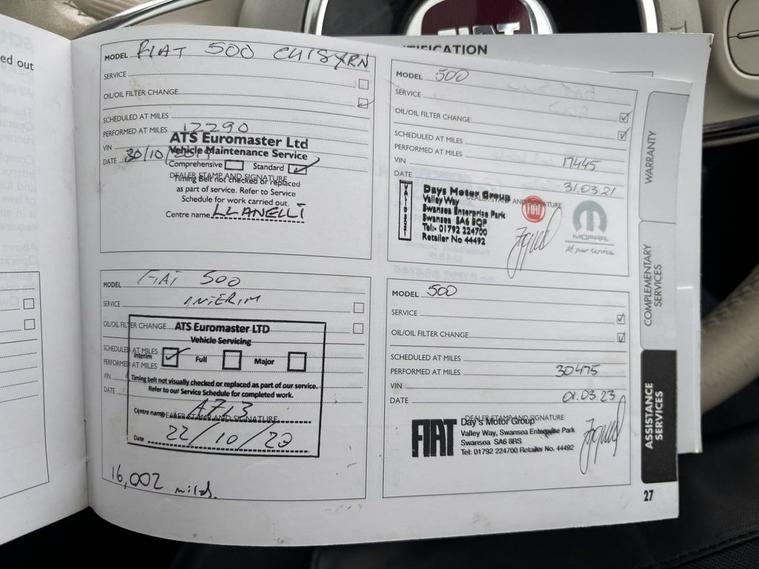 ed out
FIAT
TIFICATION
MODEL FIAT 500 CU18XRN
SERVICE
OIL/OIL FILTER CHANGE
SCHEDULED AT MILES
PERFORMED AT MILES 12290
VIN
DATE 30/10/
ATS Euromaster Ltd
Vehicle Maintenance Service
Comprehensive Standard
DEALER STAMP AND SIGNATURE
Timing Belt not checked or replaced
as part of service. Refer to Service
Schedule for work carried out.
Centre name LLANELLI
MODEL FIAT 500
SERVICE INTERIM
OIL/OIL FILTER CHANGE
SCHEDULED AT MILES
PERFORMED AT MILES
VIN
DATE
ATS Euromaster LTD
Vehicle Servicing
Interim Full Major
Timing belt not visually checked or replaced as part of our service.
Refer to our Service Schedule for completed work.
Centre name
DEALER STAMP AND SIGNATURE
Date 22/10/20
16,002 miles.
MODEL 500
SERVICE
OIL/OIL FILTER CHANGE
SCHEDULED AT MILES
PERFORMED AT MILES 17445
VIN
DATE 31.03.21
DEALER STAMP AND SIGNATURE
Days Motor Group
Valley Way
Swansea Enterprise Park
Swansea SA6 8QP
Tel:- 01792 224700
Retailer No 44492
FIAT
MOPAR
MODEL 500
SERVICE
OIL/OIL FILTER CHANGE
SCHEDULED AT MILES
PERFORMED AT MILES 30475
VIN
DATE 01.03.23
DEALER STAMP AND SIGNATURE
FIAT
Day's Motor Group
Valley Way, Swansea Enterprise Park
Swansea SA6 8RS
Tel: 01792 224700 Retailer No. 44492
WARRANTY
COMPLEMENTARY
SERVICES
ASSISTANCE
SERVICES
27